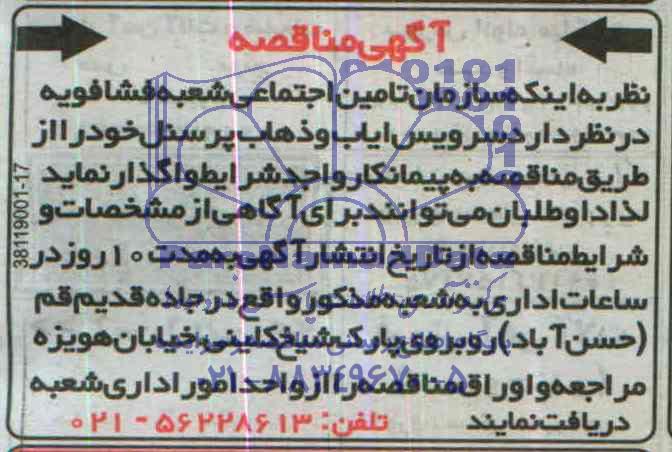 آگهی مناقصه
نظر به اینکه سازمان تامین اجتماعی شعبه فشافویه
در نظر دارد سرویس ایاب و ذهاب پرسنل خود را از
طریق مناقصه به پیمانکار واحد شرایط واگذار نماید
لذا داوطلبان می توانند برای آگاهی از مشخصات و
شرایط مناقصه از تاریخ انتشار آگهی به مدت ۱۰ روز در
ساعات اداری به شعبه مذکور واقع در جاده قدیم قم
(حسن آباد) روبروی پارک شیخ کلینی خیابان هویزه
مراجعه و اوراق مناقصه را از واحد امور اداری شعبه
دریافت نمایند تلفن: ۵۶۲۲۸۶۱۳ - ۰۲۱
38119001-17
ParsNamadData
۰۲۱-۸۸۳۴۹۶۷۰-۵